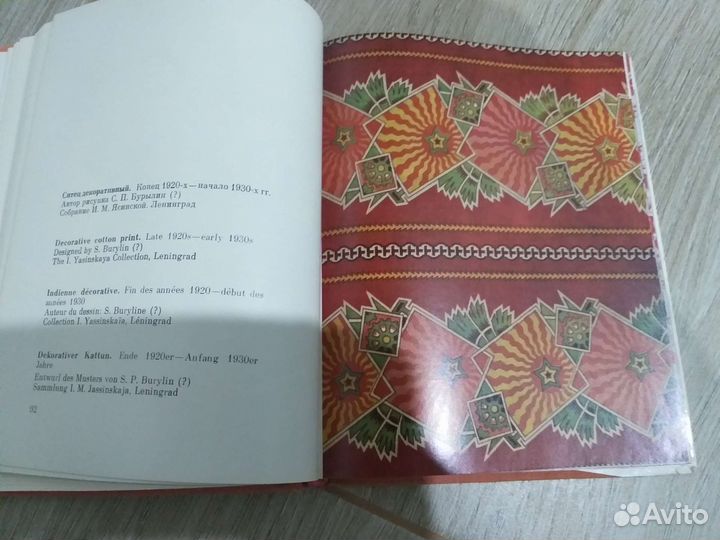 Ситец декоративный. Конец 1920-х—начало 1930-х гг.
Автор рисунка С. П. Бурылин (?)
Собрание И. М. Ясинской. Ленинград
Decorative cotton print. Late 1920s—early 1930s
Designed by S. Burylin (?)
The I. Yasinskaya Collection, Leningrad
Indienne décorative. Fin des années 1920—début des
années 1930
Auteur du dessin: S. Buryline (?)
Collection I. Yassinskaïa, Léningrad
Dekorativer Kattun. Ende 1920er—Anfang 1930er
Jahre
Entwurf des Musters von S. P. Burylin (?)
Sammlung I. M. Jassinskaja, Leningrad
92
Avito